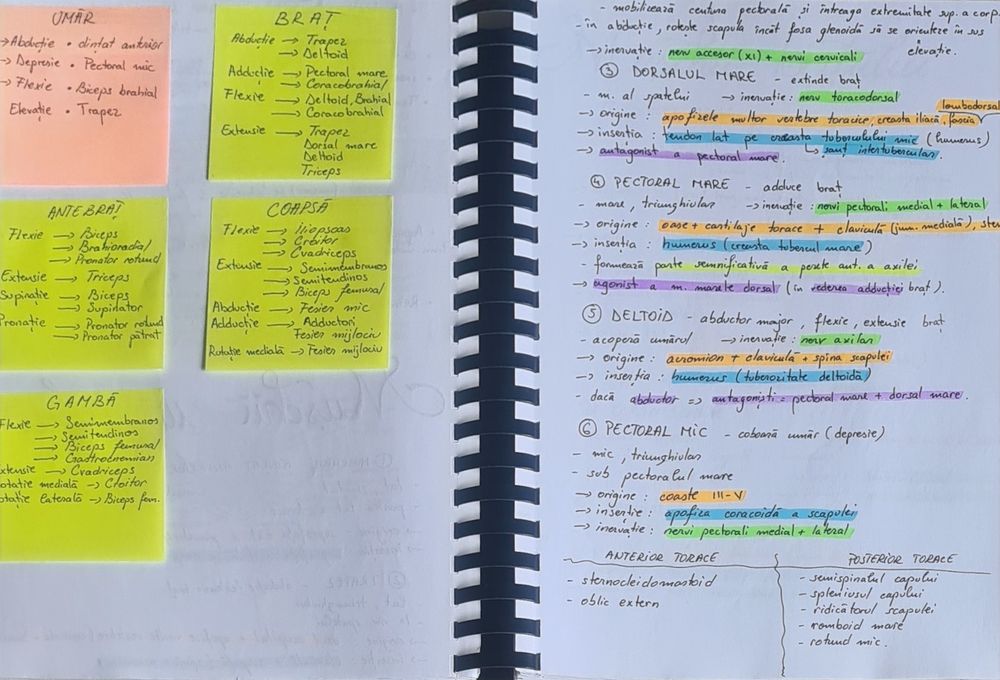 UMĂR
→Abducție • dințat anterior
→Depresie • Pectoral mic
→Flexie • Biceps brahial
Elevație • Trapez
BRAȚ
Abducție → Trapez
→ Deltoid
Adducție → Pectoral mare
→ Coracobrahial
Flexie → Deltoid, Brahial
→ Coracobrahial
Extensie → Trapez
Dorsal mare
Deltoid
Triceps
ANTEBRAȚ
Flexie → Biceps
→ Brahioradial
→ Pronator rotund
Extensie → Triceps
Supinație → Biceps
→ Supinator
Pronație → Pronator rotund
→ Pronator pătrat
COAPSĂ
Flexie → Iliopsoas
→ Croitor
→ Cvadriceps
Extensie → Semimembranos
→ Semitendinos
→ Biceps femural
Abducție → Fesier mic
Adducție → Adductori
Fesier mijlociu
Rotație medială → Fesier mijlociu
GAMBĂ
Flexie → Semimembranos
→ Semitendinos
→ Biceps femural
→ Gastrocnemian
xtensie → Cvadriceps
otație medială → Croitor
otație laterală → Biceps fem.
- mobilizează centura pectorală și întreaga extremitate sup. a corp.
- în abducție, rotește scapula încât fosa glenoidă să se orienteze în sus
elevație.
→ inervație: nerv accesor (XI) + nervi cervicali
③ DORSALUL MARE - extinde braț
- m. al spatelui → inervație: nerv toracodorsal
lombodorsal
→ origine: apofizele multor vertebre toracice, creasta iliacă, fascia
→ inserția: tendon lat pe creasta tuberculului mic (humerus)
→ șanț intertubercular.
→ antagonist a pectoral mare.
④ PECTORAL MARE - adduce braț
- mare, triunghiular → inervație: nervi pectorali medial + lateral
→ origine: oase + cartilaje torace + claviculă (jum. medială), ste
→ inserția: humerus (creasta tubercul mare)
- formează parte semnificativă a perete ant. a axilei
→ agonist a m. marele dorsal (în vederea adducției braț).
⑤ DELTOID - abductor major, flexie, extensie braț
- acoperă umărul → inervație: nerv axilar
→ origine: acromion + claviculă + spina scapulei
→ inserția: humerus (tuberozitate deltoidă)
- dacă abductor => antagoniști = pectoral mare + dorsal mare.
⑥ PECTORAL MIC - coboară umăr (depresie)
- mic, triunghiular
- sub pectoralul mare
→ origine: coaste III-V
→ inserție: apofiza coracoidă a scapulei
→ inervație: nervi pectorali medial + lateral
ANTERIOR TORACE
- sternocleidomastoid
- oblic extern
POSTERIOR TORACE
- semispinalul capului
- spleniusul capului
- ridicătorul scapulei
- romboid mare
- rotund mic.